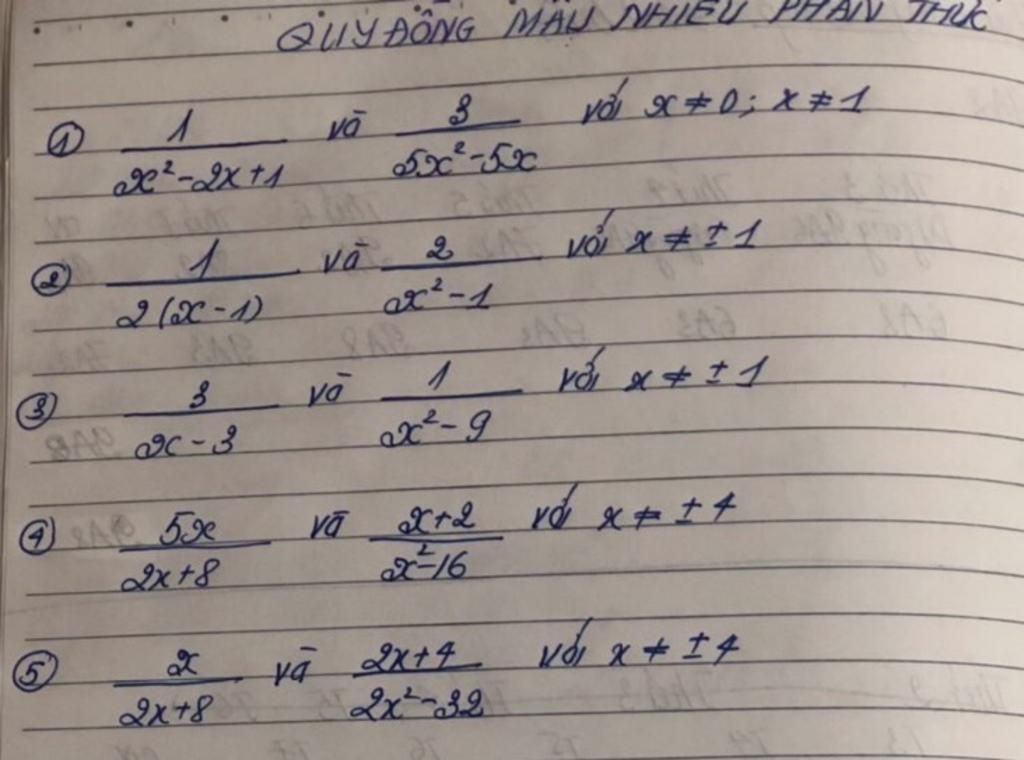 QUY ĐỒNG MẪU NHIỀU PHÂN THỨC
① 1/(x²-2x+1) và 3/(5x²-5x) với x ≠ 0; x ≠ 1
② 1/(2(x-1)) và 2/(x²-1) với x ≠ ±1
③ 3/(x-3) và 1/(x²-9) với x ≠ ±1
④ 5x/(2x+8) và (x+2)/(x²-16) với x ≠ ±4
⑤ x/(2x+8) và (2x+4)/(2x²-32) với x ≠ ±4